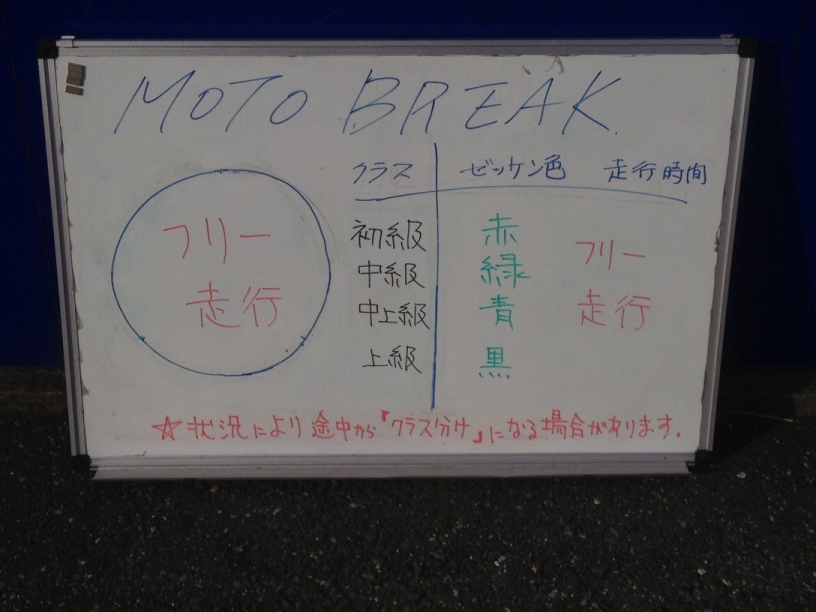 MOTO BREAK
クラス ゼッケン色 走行時間
フリー
走行
初級 赤
中級 緑
中上級 青
上級 黒
フリー
走行
☆状況により途中から『クラス分け』になる場合があります。